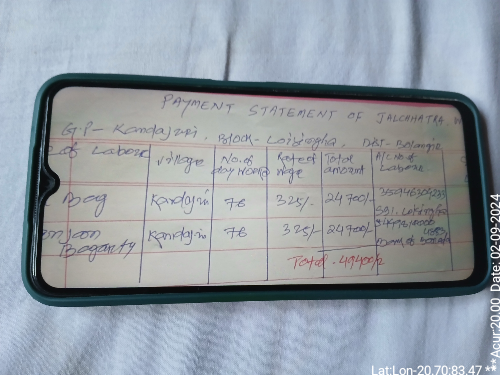 PAYMENT STATEMENT OF JALCHHATRA
G.P- Kandajuri, Block- Loisingha, Dist- Bolangir
of Labour Village No. of day work Rate of wage Total amount A/C No of Labour
Bag Kandajuri 76 325/- 24700/-
SBI. Loisingha
Baganty Kandajuri 76 325/- 24700/-
Total - 49400/-
Lat:Lon-20.70:83.47 **Acur:20.00 Date: 02-09-2024